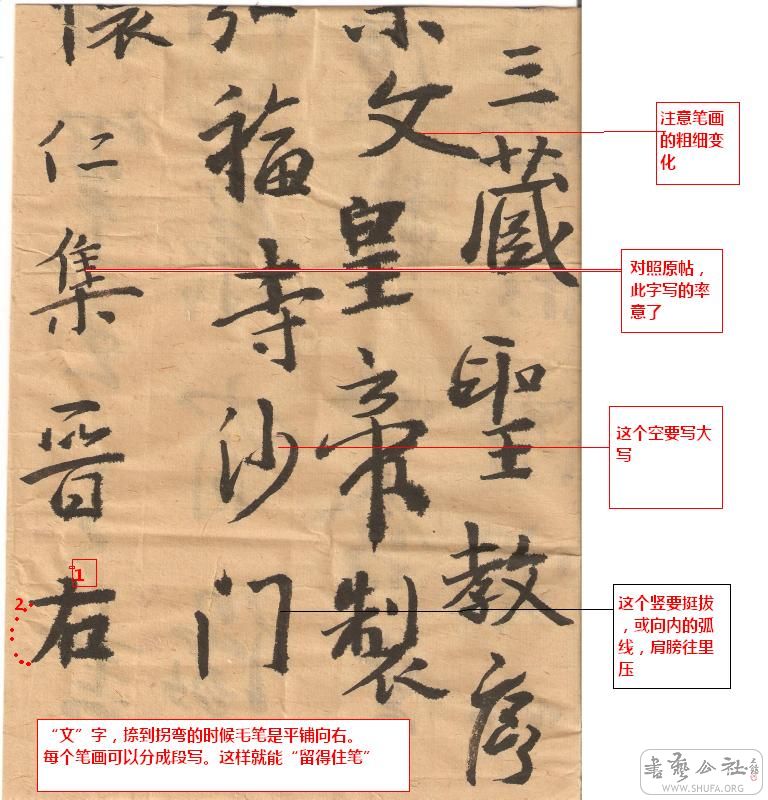 三藏聖教序
文皇帝製
福寺沙门
懷仁集晋右
注意笔画
的粗细变
化
对照原帖，
此字写的率
意了
这个空要写大
写
这个竖要挺拔
，或向内的弧
线，肩膀往里
压
1
2
“文”字，捺到拐弯的时候毛笔是平铺向右。
每个笔画可以分成段写。这样就能“留得住笔”
書藝公社
WWW.SHUFA.ORG